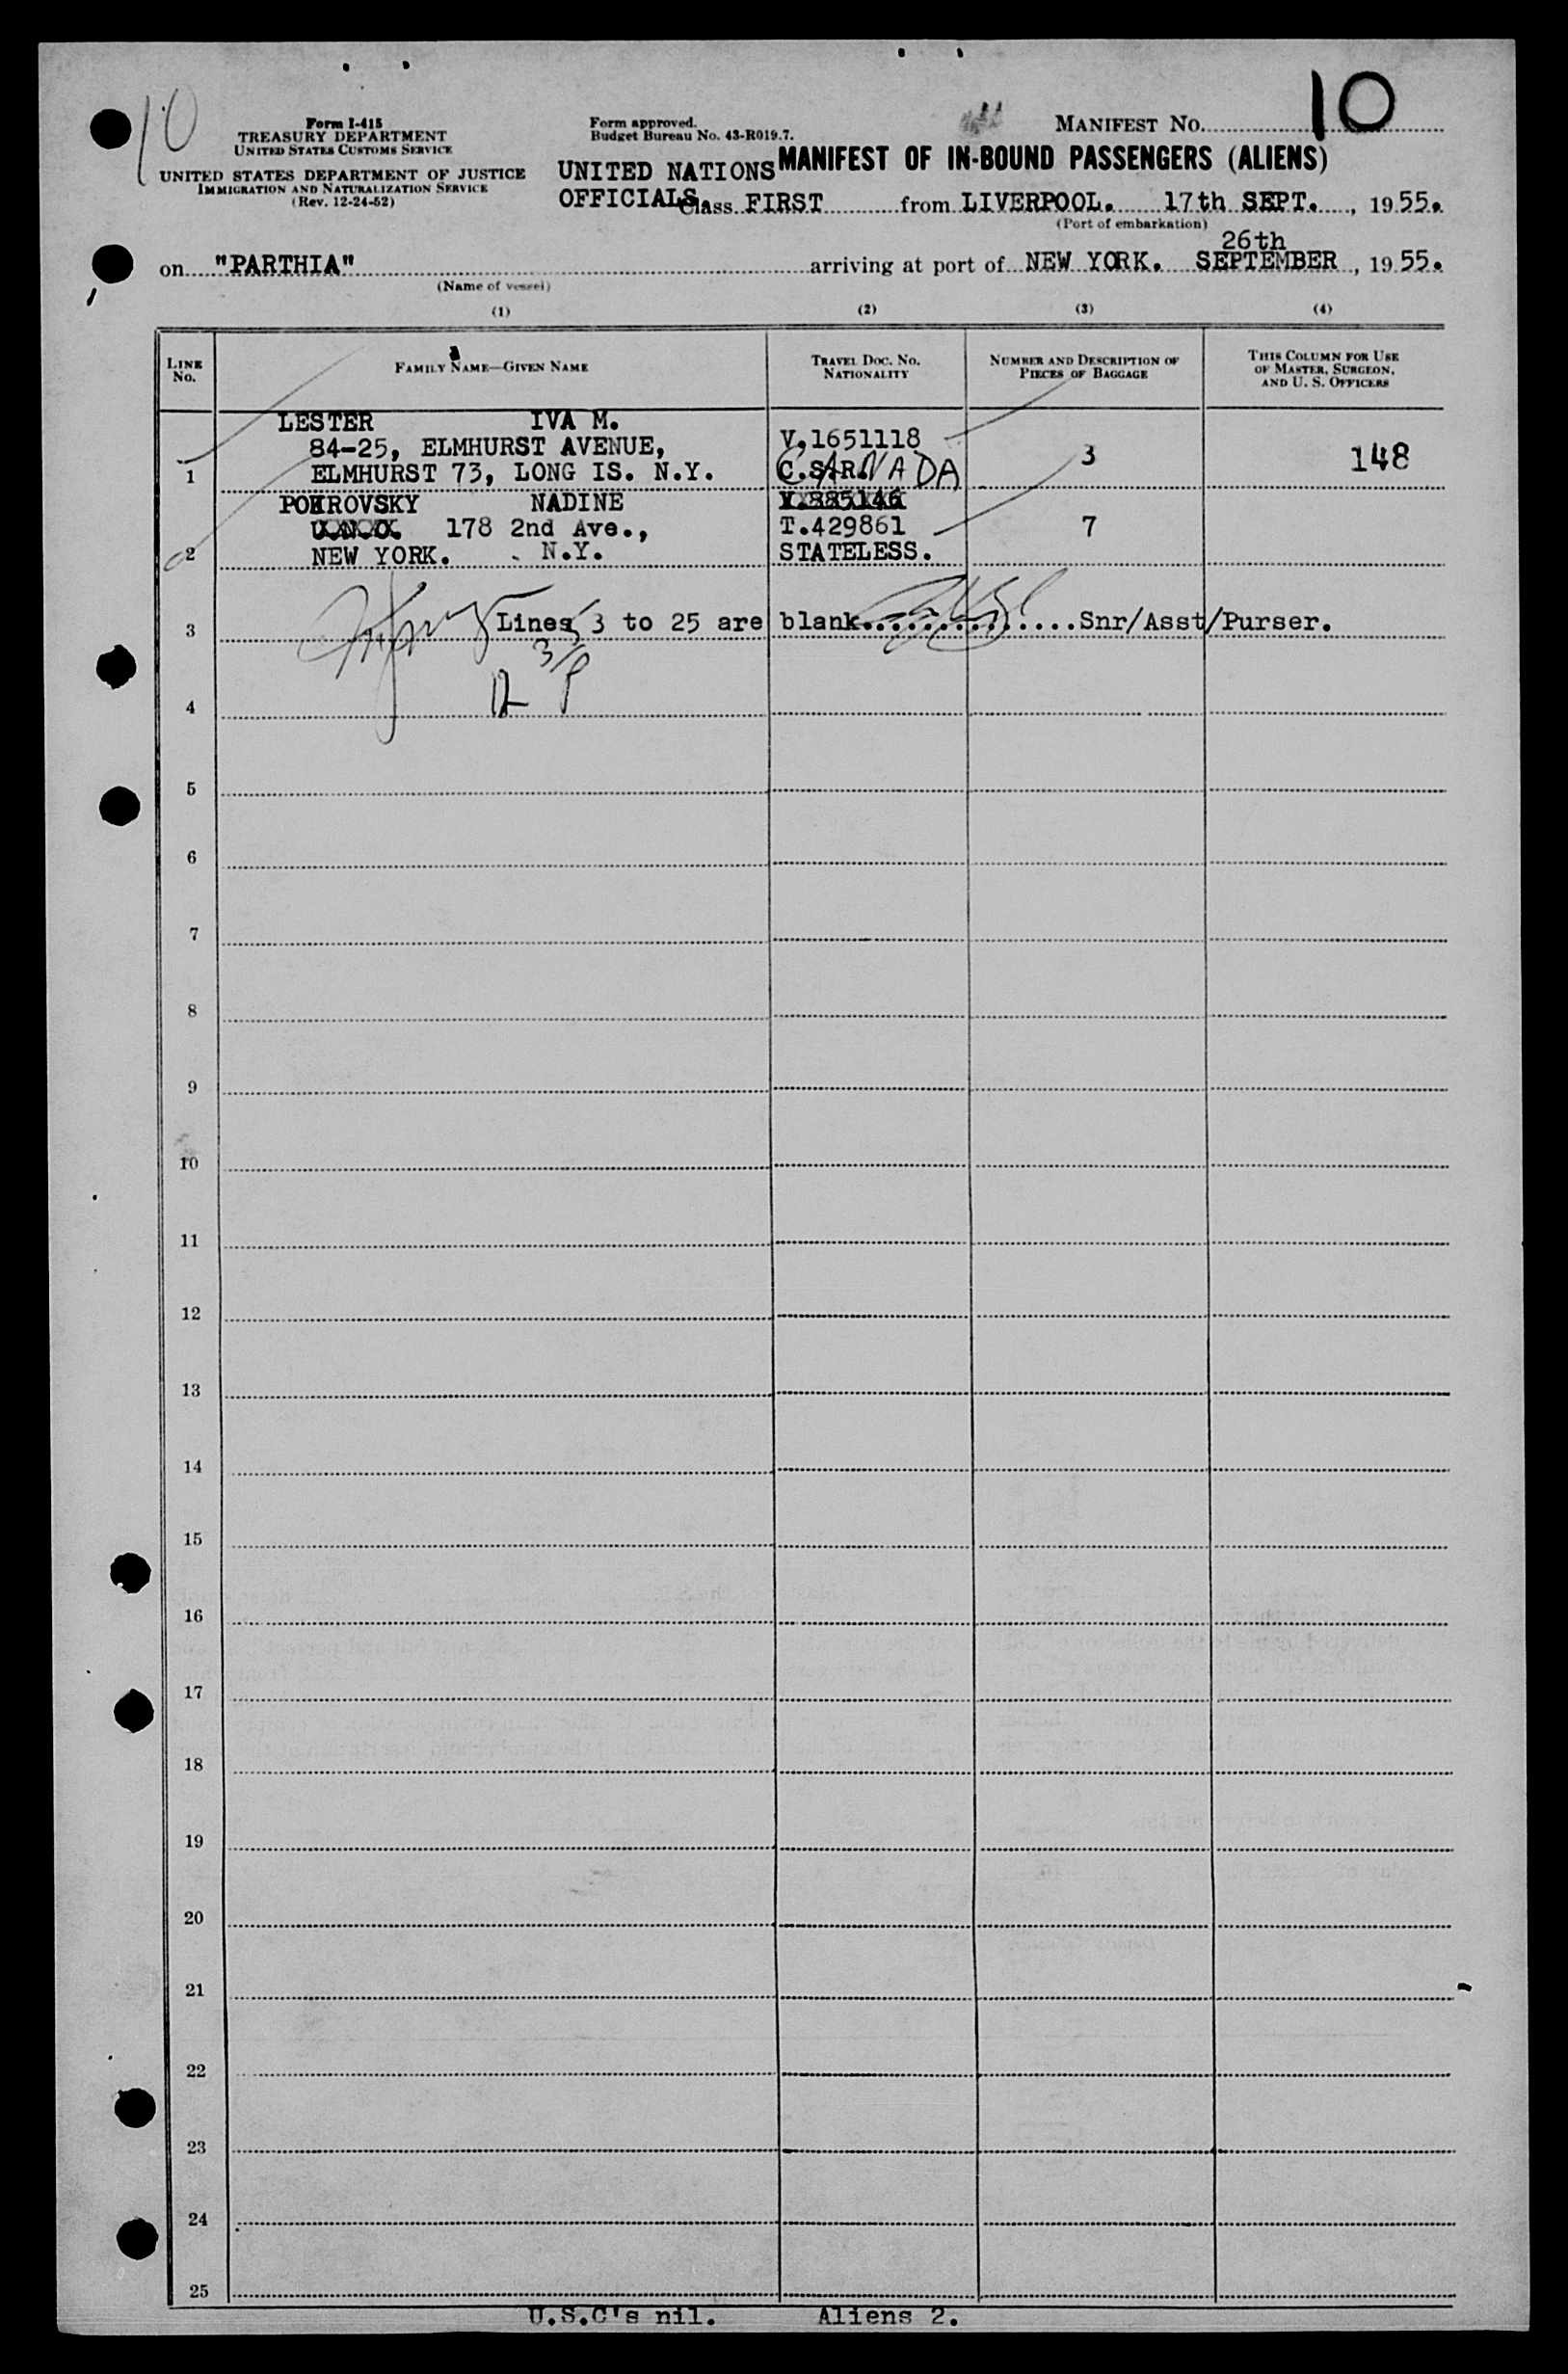 10
10
Form I-415
TREASURY DEPARTMENT
UNITED STATES CUSTOMS SERVICE
UNITED STATES DEPARTMENT OF JUSTICE
IMMIGRATION AND NATURALIZATION SERVICE
(Rev. 12-24-52)
Form approved.
Budget Bureau No. 43-R019.7.
MANIFEST NO.
UNITED NATIONS MANIFEST OF IN-BOUND PASSENGERS (ALIENS)
OFFICIALS. Class FIRST from LIVERPOOL. 17th SEPT., 1955.
(Port of embarkation)
26th
on "PARTHIA" arriving at port of NEW YORK. SEPTEMBER, 1955.
(Name of vessel)
(1) (2) (3) (4)
LINE NO.
FAMILY NAME—GIVEN NAME
TRAVEL DOC. NO.
NATIONALITY
NUMBER AND DESCRIPTION OF
PIECES OF BAGGAGE
THIS COLUMN FOR USE
OF MASTER, SURGEON,
AND U. S. OFFICERS
LESTER IVA M.
84-25, ELMHURST AVENUE, V.1651118
1 ELMHURST 73, LONG IS. N.Y. CANADA 3 148
POKROVSKY NADINE V.885146
U.N.O. 178 2nd Ave., T.429861 7
2 NEW YORK. N.Y. STATELESS.
3 Lines 3 to 25 are blank..............Snr/Asst/Purser.
4
5
6
7
8
9
10
11
12
13
14
15
16
17
18
19
20
21
22
23
24
25
U.S.C's nil. Aliens 2.